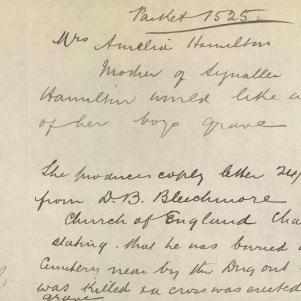 Packet 1525.
Mrs Amelia Hamilton
Mother of Signaller
Hamilton would like a
of her boys grave
She produces copy letter 24/
from D. B. Blackmore
Church of England Cha
stating. that he was buried a
Cemetery near by the Dug out
was killed & a cross was erected
grave